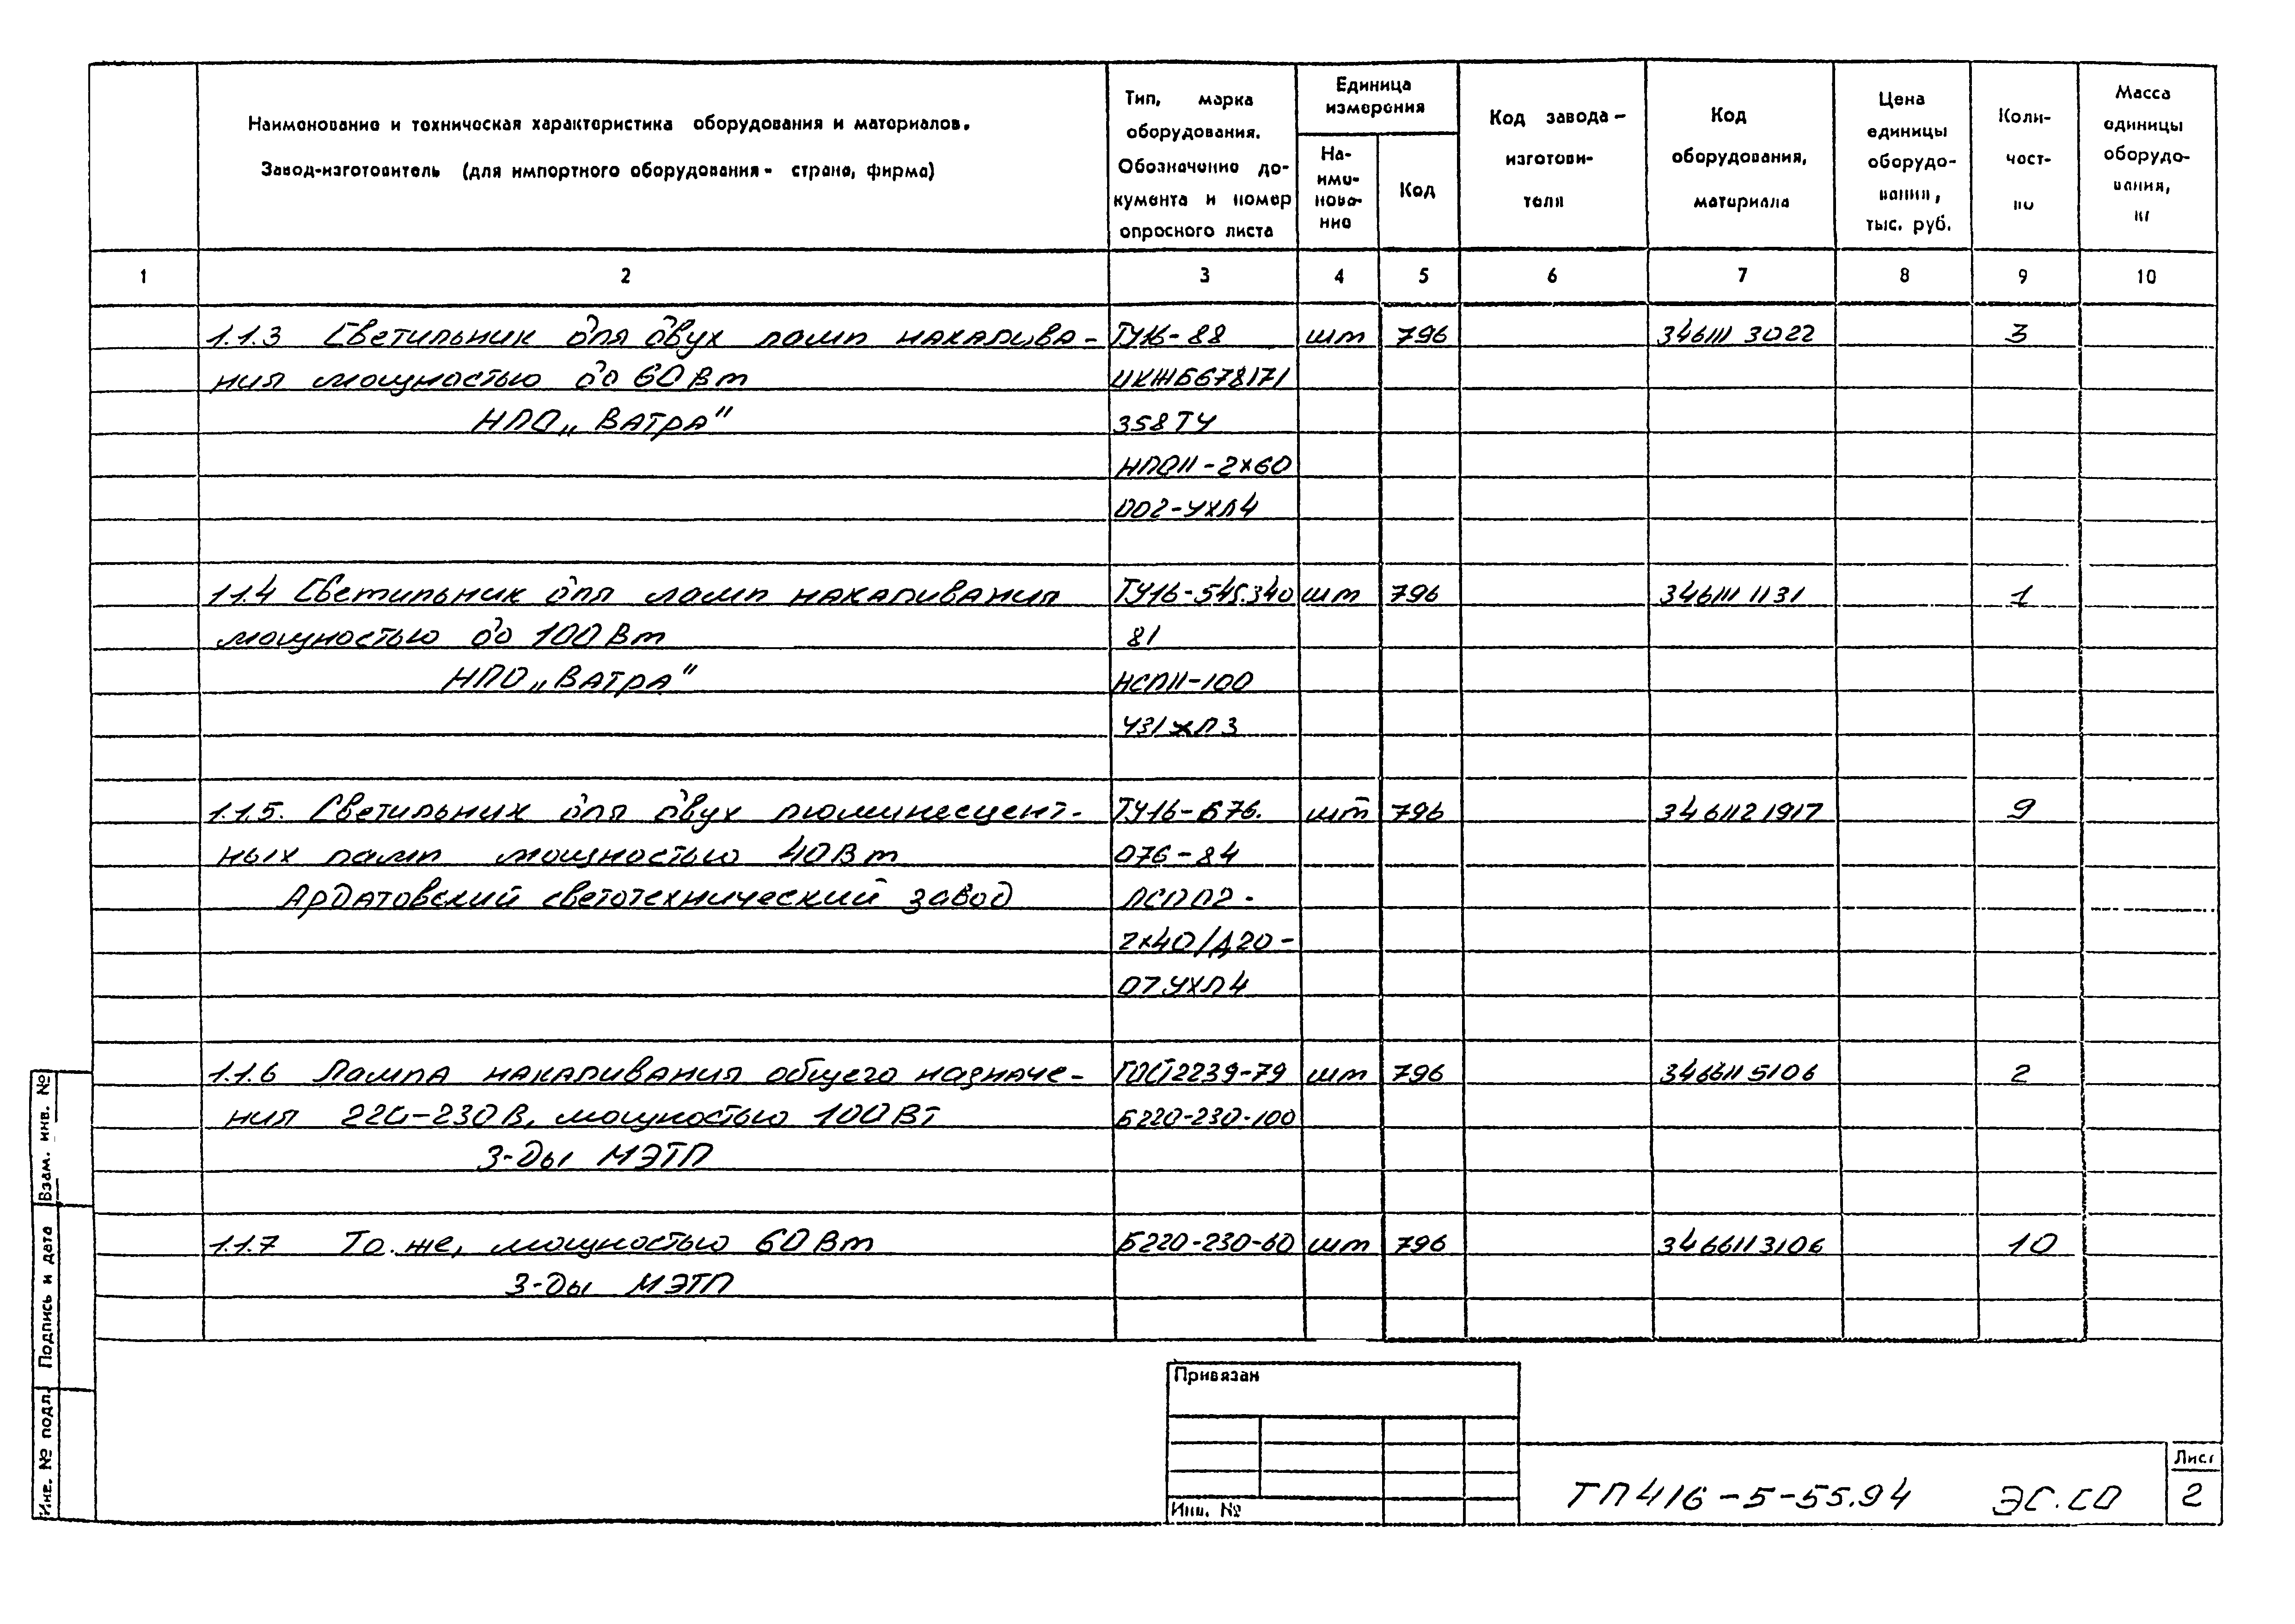 Наименование и техническая характеристика оборудования и материалов.
Завод-изготовитель (для импортного оборудования - страна, фирма)
Тип, марка
оборудования.
Обозначение до-
кумента и номер
опросного листа
Единица
измерения
На-
име-
нова-
ние
Код
Код завода -
изготови-
теля
Код
оборудования,
материала
Цена
единицы
оборудо-
вания,
тыс. руб.
Коли-
чест-
во
Масса
единицы
оборудо-
вания,
кг
1 2 3 4 5 6 7 8 9 10
1.1.3 Светильник для двух ламп накалива- ТУ16-88 шт 796 346111 3022 3
ния мощностью до 60 Вт ИКЖБ678171
НПО „ВАТРА" 358 ТУ
НПО11-2х60
002-УХЛ4
1.1.4 Светильник для ламп накаливания ТУ16-545.340 шт 796 346111 1131 1
мощностью до 100 Вт 81
НПО „ВАТРА" НСП11-100
УХЛ3
1.1.5. Светильник для двух люминесцент- ТУ16-676. шт 796 346112 1917 9
ных ламп мощностью 40 Вт 076-84
Ардатовский светотехнический завод ЛСП02-
2х40/Д20-
07 УХЛ4
1.1.6 Лампа накаливания общего назначе- ГОСТ2239-79 шт 796 346611 5106 2
ния 220-230 В, мощностью 100 Вт Б220-230-100
З-ды МЭТП
1.1.7 То же, мощностью 60 Вт Б220-230-60 шт 796 346611 3106 10
З-ды МЭТП
Взам. инв. №
Подпись и дата
Инв. № подл.
Привязан
Инв. №
ТП 416-5-55.94 ЭС.СО
Лист
2